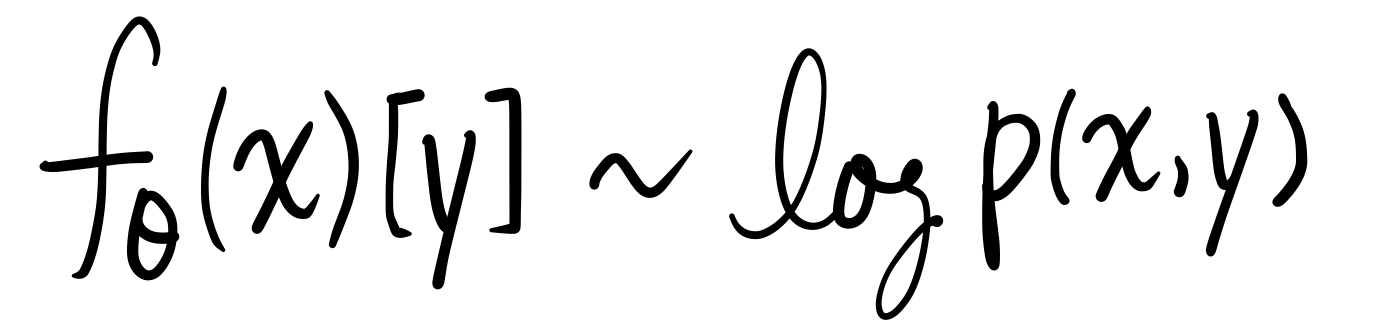 f_θ(x)[y] ~ log p(x,y)